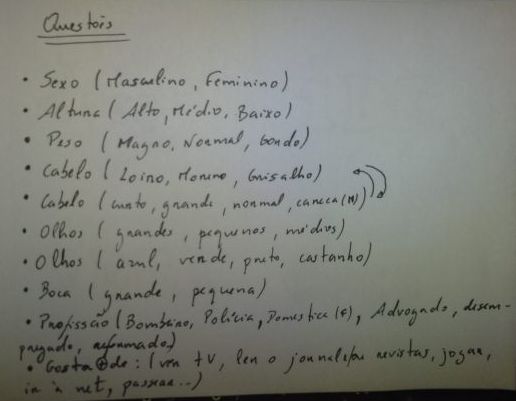 Questões
• Sexo (Masculino, Feminino)
• Altura (Alto, Médio, Baixo)
• Peso (Magro, Normal, Gordo)
• Cabelo (Loiro, Moreno, Grisalho)
• Cabelo (curto, grande, normal, careca (M))
• Olhos (grandes, pequenos, médios)
• Olhos (azul, verde, preto, castanho)
• Boca (grande, pequena)
• Profissão (Bombeiro, Polícia, Domestica (F), Advogado, desem-
pregado, reformado)
• Gosta de: (ver tv, ler o jornal/ revistas, jogar,
ir à net, passear...)